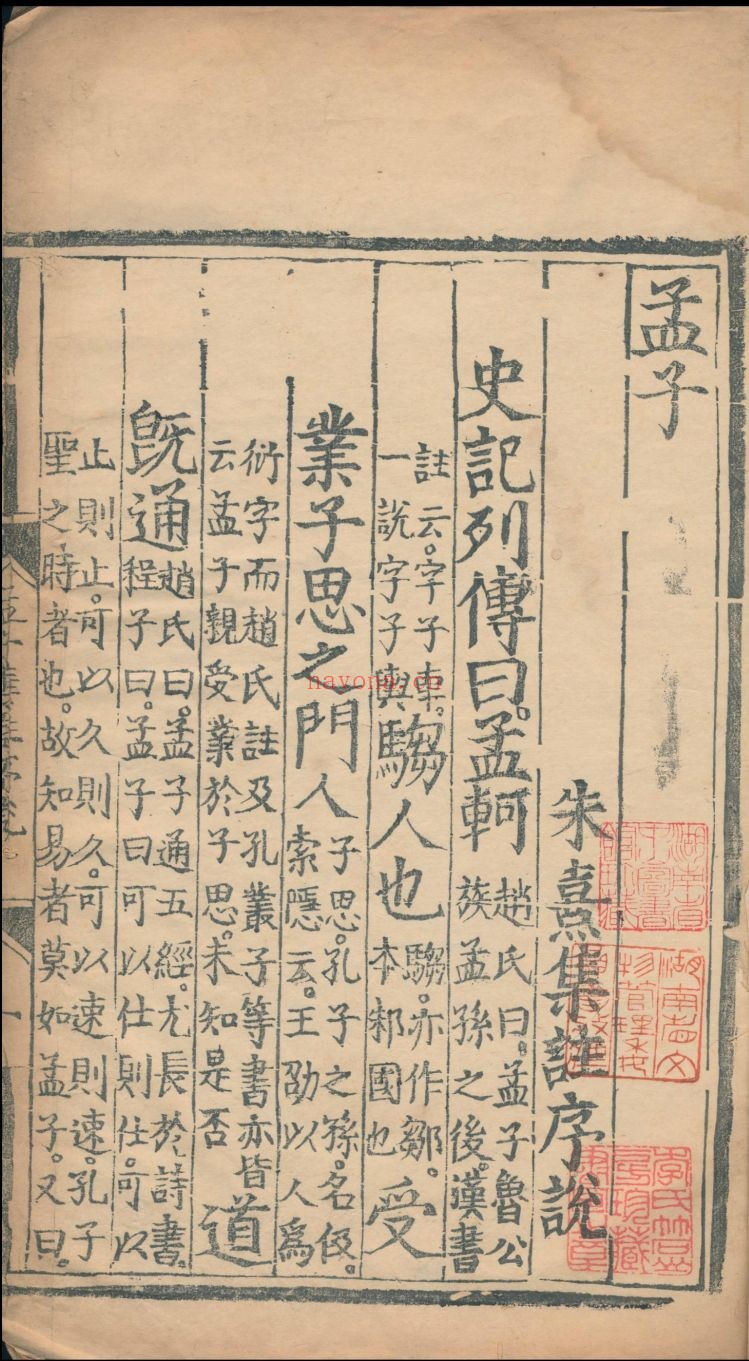 孟子
朱熹集註序說
史記列傳曰。孟軻
趙氏曰。孟子魯公
族孟孫之後。漢書
註云。字子車。
一說字子輿
騶人也
騶。亦作鄒。
本邾國也
受
業子思之門人
子思。孔子之孫。名伋。
索隱云。王劭以人爲
衍字而趙氏註及孔叢子等書亦皆
云孟子親受業於子思。未知是否
道
旣通
趙氏曰。孟子通五經。尤長於詩書。
程子曰。孟子曰可以仕則仕。可以
止則止。可以久則久。可以速則速。孔子
聖之時者也。故知易者莫如孟子。又曰。
湖南省文物管理委
李氏
珍藏
nayona.cn